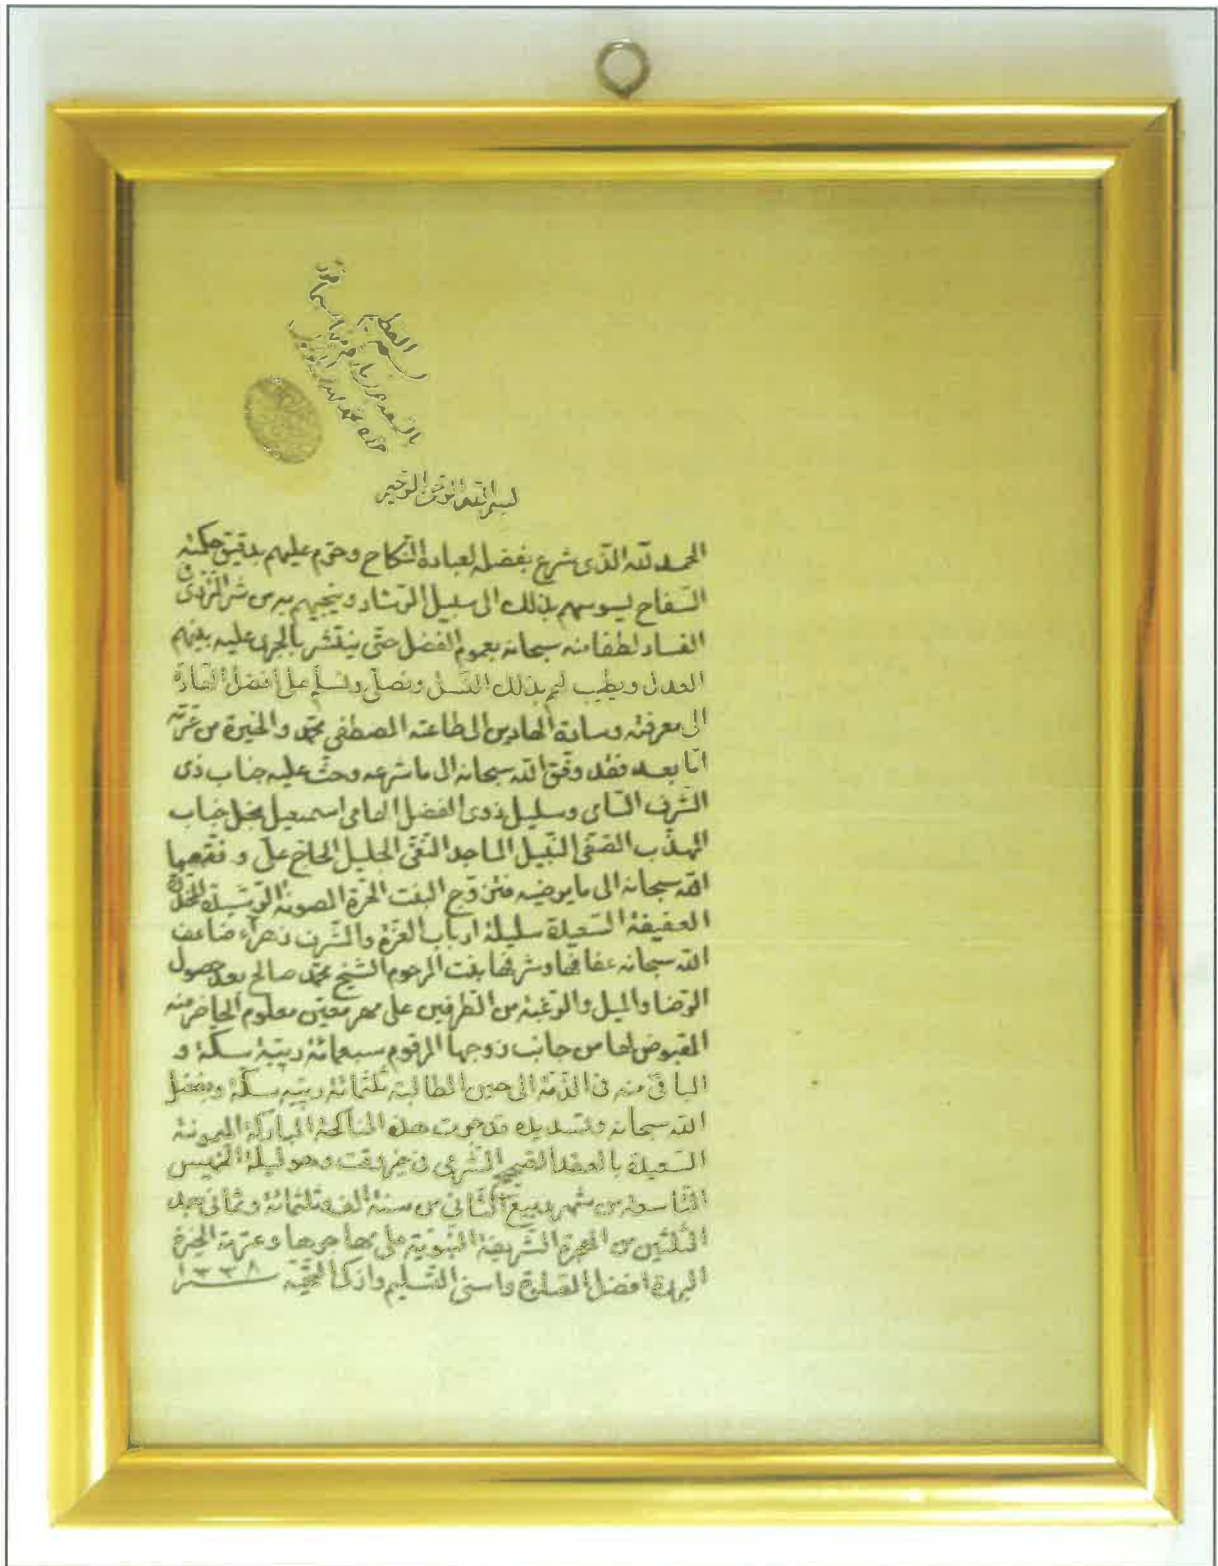 بسم الله الرحمن الرحيم
الحمد لله الذى شرع بفضله لعباده النكاح وحرم عليهم بدقيق حكمته
السفاح ليسوسهم بذلك الى سبيل الرشاد وينجيهم به من شر التردى فى
الفساد لطفا منه سبحانه بعموم الفضل حتى ينتشر بالجرى عليه بينهم
العدل ويطيب لهم بذلك النسل ونصلى ونسلم على افضل القادة
الى معرفته وسادة الهادين الى طاعته المصطفى محمد والخيرة من عترته
اما بعد فقد وفق الله سبحانه الى ما شرعه وحث عليه جناب ذى
الشرف السامى وسليل ذوى الفضل اسمعيل نجل جناب
المهذب الصفى النبيل الماجد التقى الجليل الحاج على وفقهما
الله سبحانه الى ما يرضيه فتزوج البنت الحرة المصونة الرشيدة المخدرة
العفيفة السعيدة سليلة ارباب العزة والشرف زهراء ضاعف
الله سبحانه عفافها وشرفها بنت المرحوم الشيخ محمد صالح بعد حصول
الرضا والميل والرغبة من الطرفين على مهر معين معلوم الحاضر منه
المقبوض لها من جانب زوجها المرقوم سبعمائة ربية سكة و
الباقى منه فى الذمة الى حين المطالبة ثلثمائة ربية سكة وبفضل
الله سبحانه وتسديده قد جرت هذه المناكحة المباركة الميمونة
السعيدة بالعقد الصحيح الشرعى فى خير وقت وهو ليلة الخميس
التاسعة من شهر ربيع الثانى من سنة الف وثلثمائة وثمانى بعد
الثلثين من الهجرة الشريفة النبوية على مهاجرها وعترته الخيرة
البررة افضل الصلوة واسنى التسليم وازكا التحية سنة ١٣٣٨